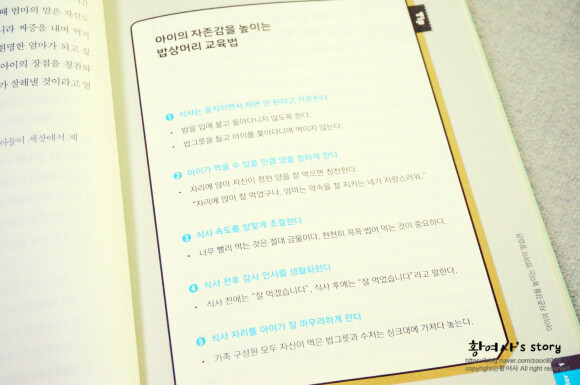 때 엄마의 말은 자신도
니라 짜증을 내며 억지
현명한 엄마가 되고 싶
아이의 장점을 정확하
가 잘해낼 것이라고 엄
아들이 세상에서 제
Tip
아이의 자존감을 높이는
밥상머리 교육법
1 식사는 움직이면서 하면 안 된다고 가르친다
• 밥을 입에 물고 돌아다니지 않도록 한다.
• 밥그릇을 들고 아이를 쫓아다니며 먹이지 않는다.
2 아이가 먹을 수 있을 만큼 양을 정하게 한다
• 자리에 앉아 자신이 정한 양을 잘 먹으면 칭찬한다.
"자리에 앉아 잘 먹었구나. 엄마는 약속을 잘 지키는 네가 자랑스러워."
3 식사 속도를 알맞게 조절한다
• 너무 빨리 먹는 것은 절대 금물이다. 천천히 꼭꼭 씹어 먹는 것이 중요하다.
4 식사 전후 감사 인사를 생활화한다
• 식사 전에는 "잘 먹겠습니다", 식사 후에는 "잘 먹었습니다"라고 말한다.
5 식사 자리를 아이가 잘 마무리하게 한다
• 가족 구성원 모두 자신이 먹은 밥그릇과 수저는 싱크대에 가져다 놓는다.
황여사's story
copyright©황여사 All right reserved